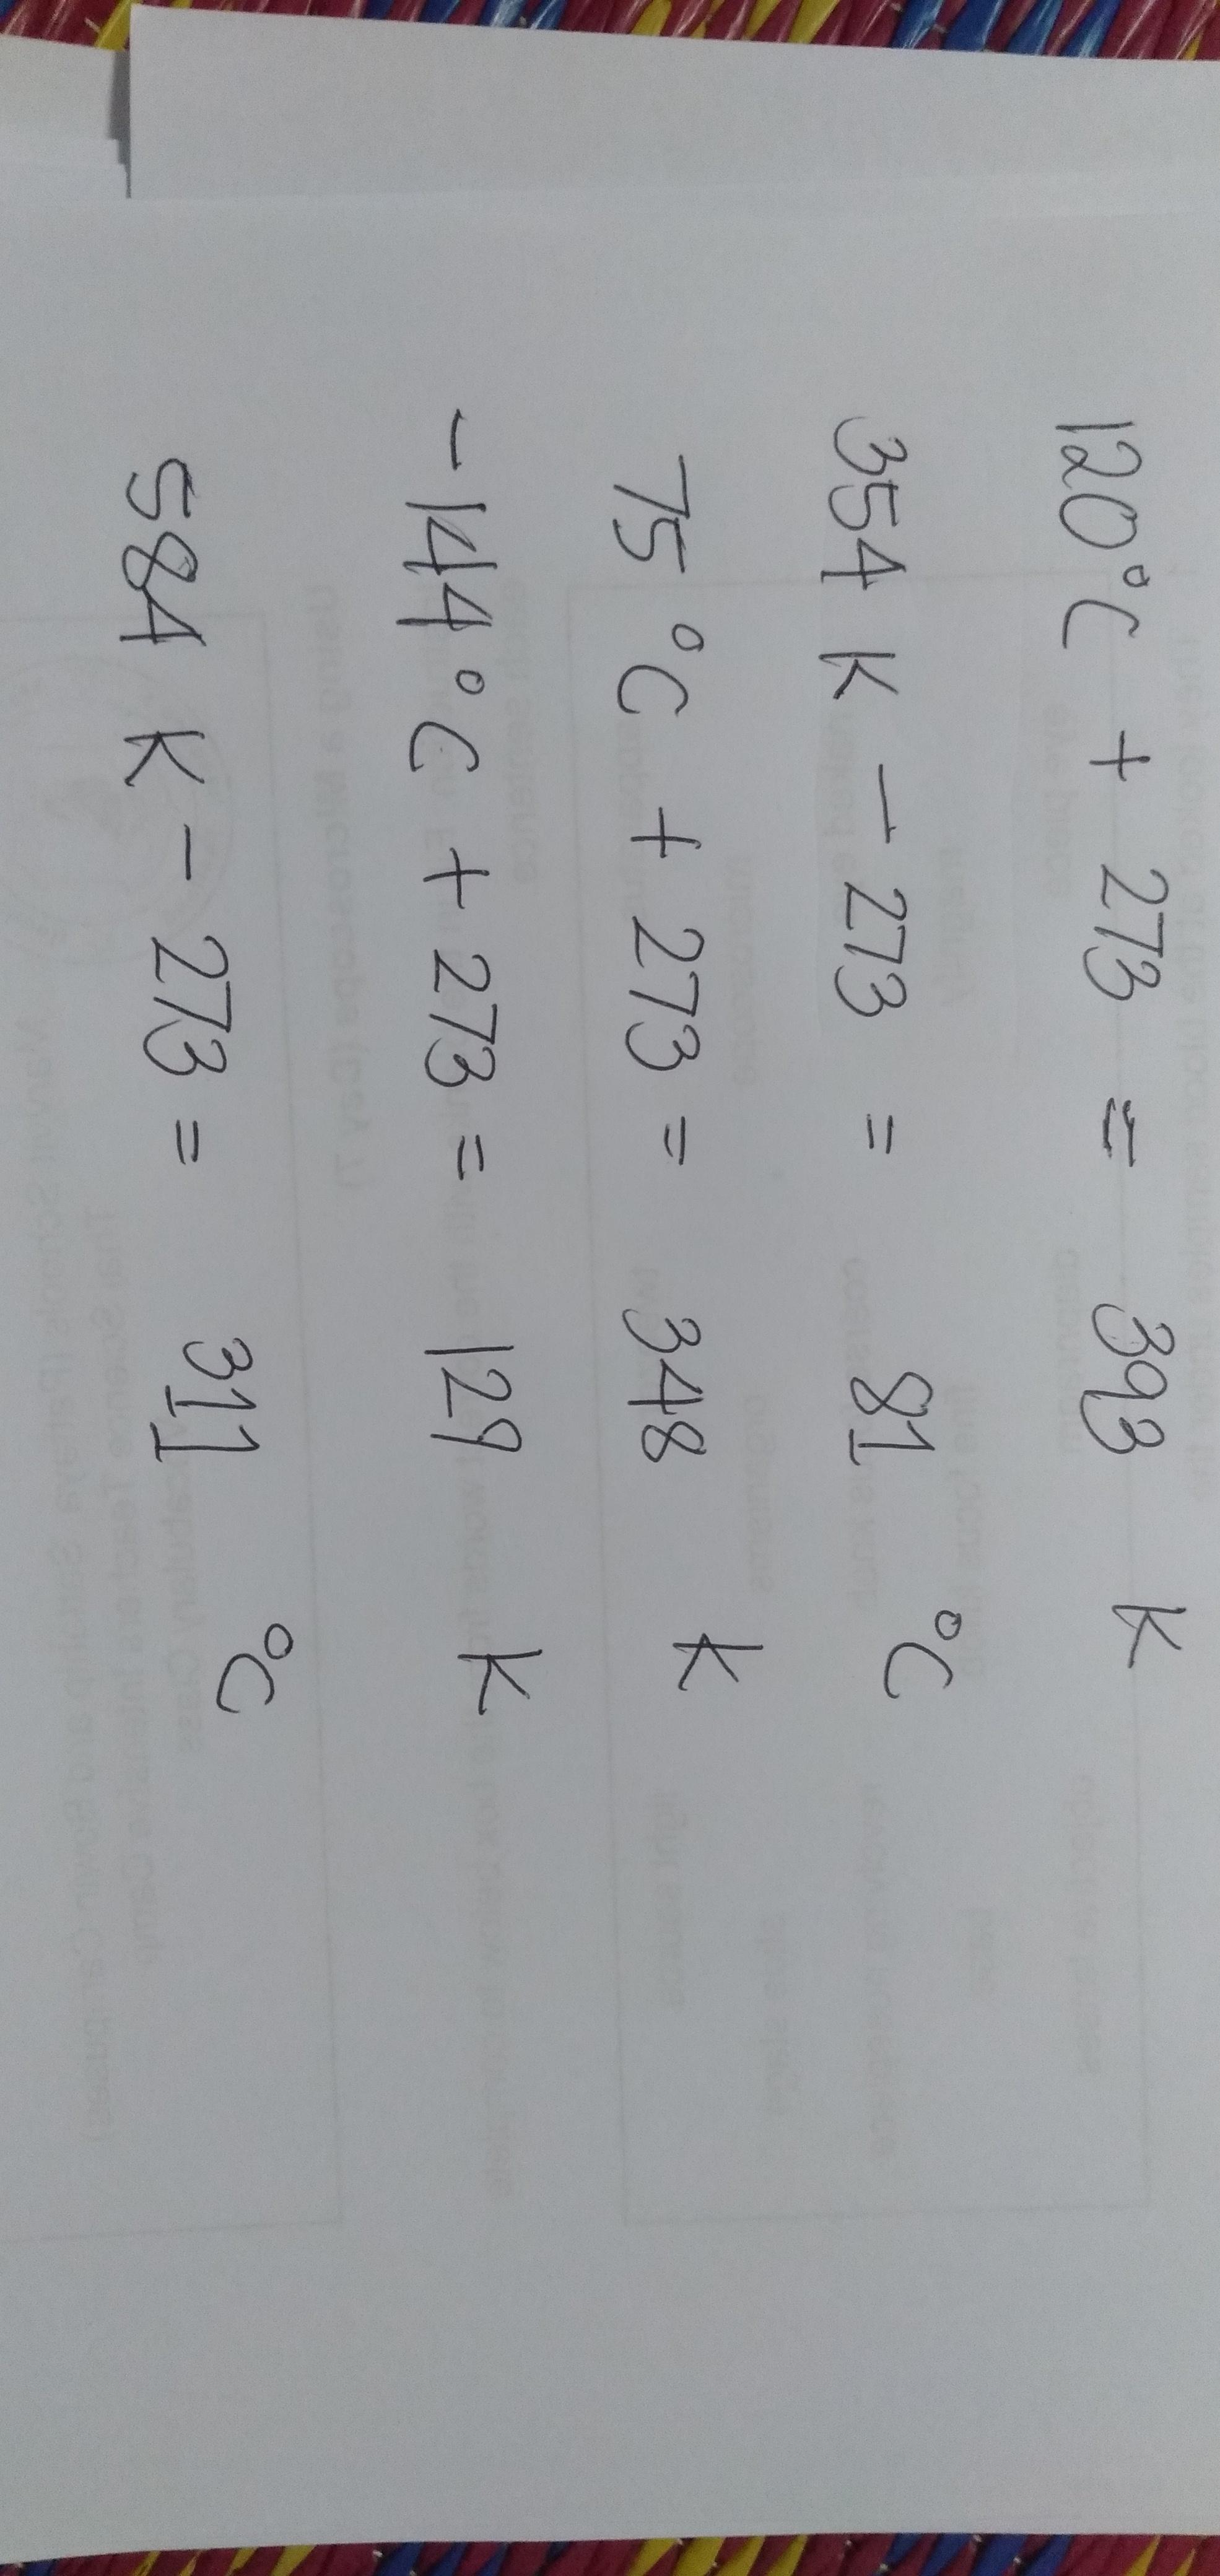 120°C + 273 = 393 K
354 K - 273 = 81 °C
75 °C + 273 = 348 K
-144°C + 273 = 129 K
584 K - 273 = 311 °C